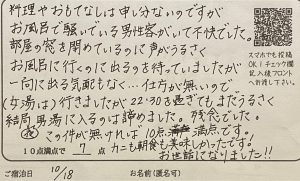 料理やおもてなしは申し分ないのですが
お風呂で騒いでいる男性客がいて不快でした。
部屋の窓を閉めているのに声がうるさく
お風呂に行くのに出るのを待っていましたが
一向に出る気配もなく… 仕方が無いので
(女湯は)行きましたが 22:30を過ぎてもまだうるさく
結局男湯に入るのは諦めました。残念でした。
この件が無ければ 10点 満点です。
10点満点で 7 点 カニも朝食も美味しかったです。
お世話になりました!!
スマホでも投稿
OK!チェック欄
記入後フロント
へお渡し下さい。
ご宿泊日 10/18 お名前(匿名可)